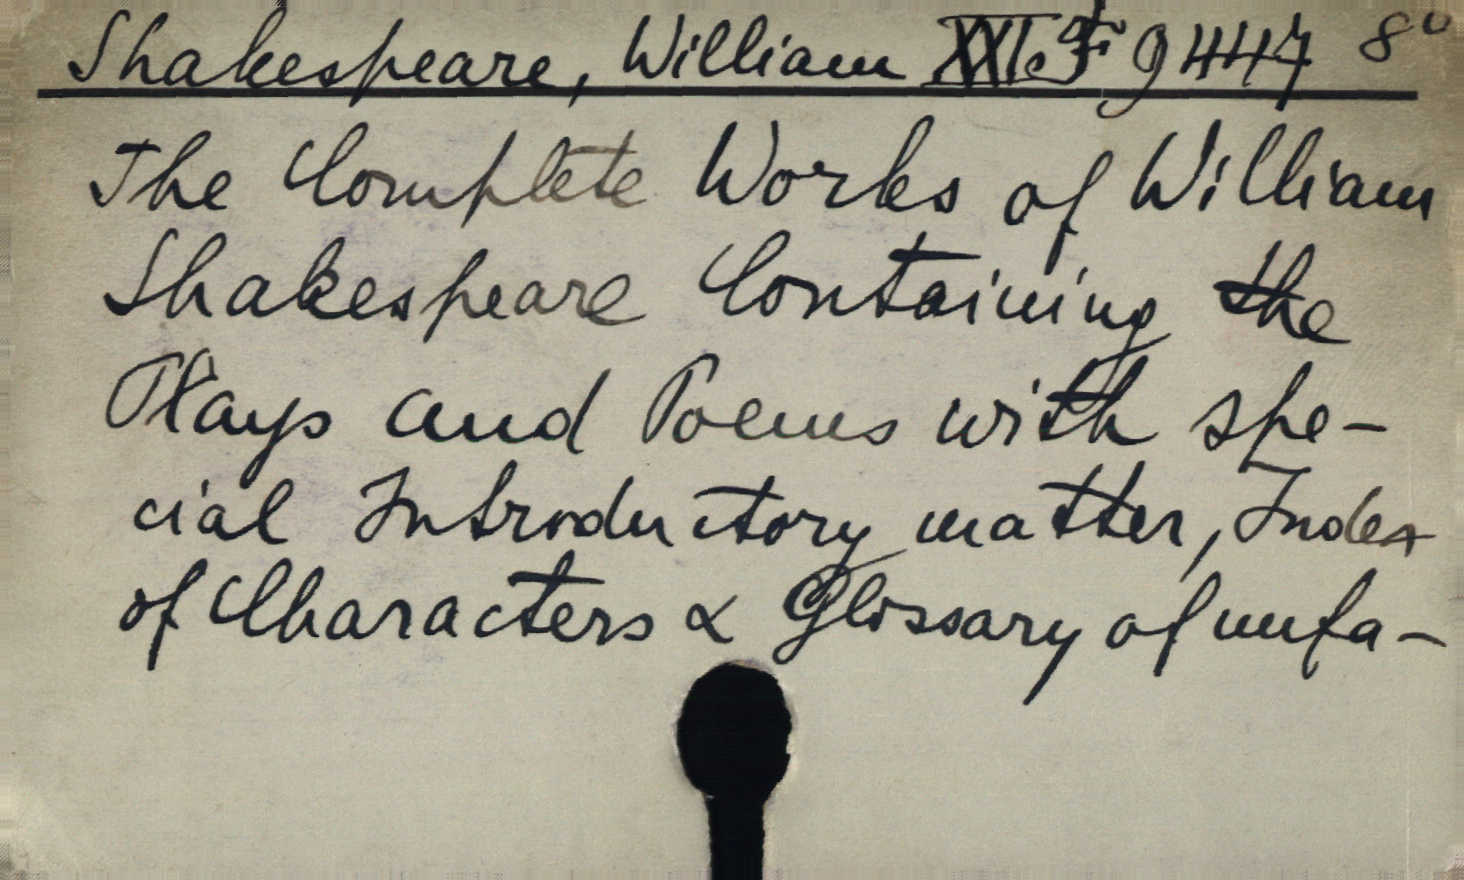 Shakespeare, William XXI.F 9447 8°
The Complete Works of William
Shakespeare Containing the
Plays and Poems with spe-
cial Introductory matter, Index
of Characters & Glossary of unfa-